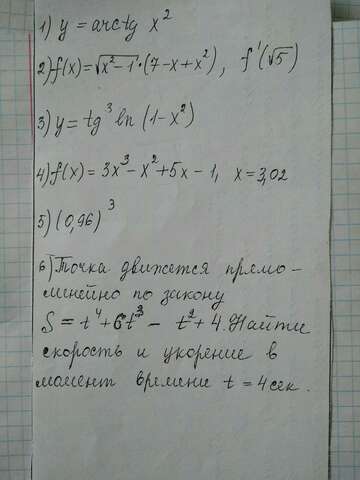 1) y = arctg x²
2) f(x) = √(x²-1) · (7-x+x²), f'(√5)
3) y = tg³ ln (1-x²)
4) f(x) = 3x³ - x² + 5x - 1, x = 3,02
5) (0,96)³
6) Точка движется прямо-
линейно по закону
S = t⁴ + 6t³ - t² + 4. Найти
скорость и укорение в
момент времени t = 4 сек.